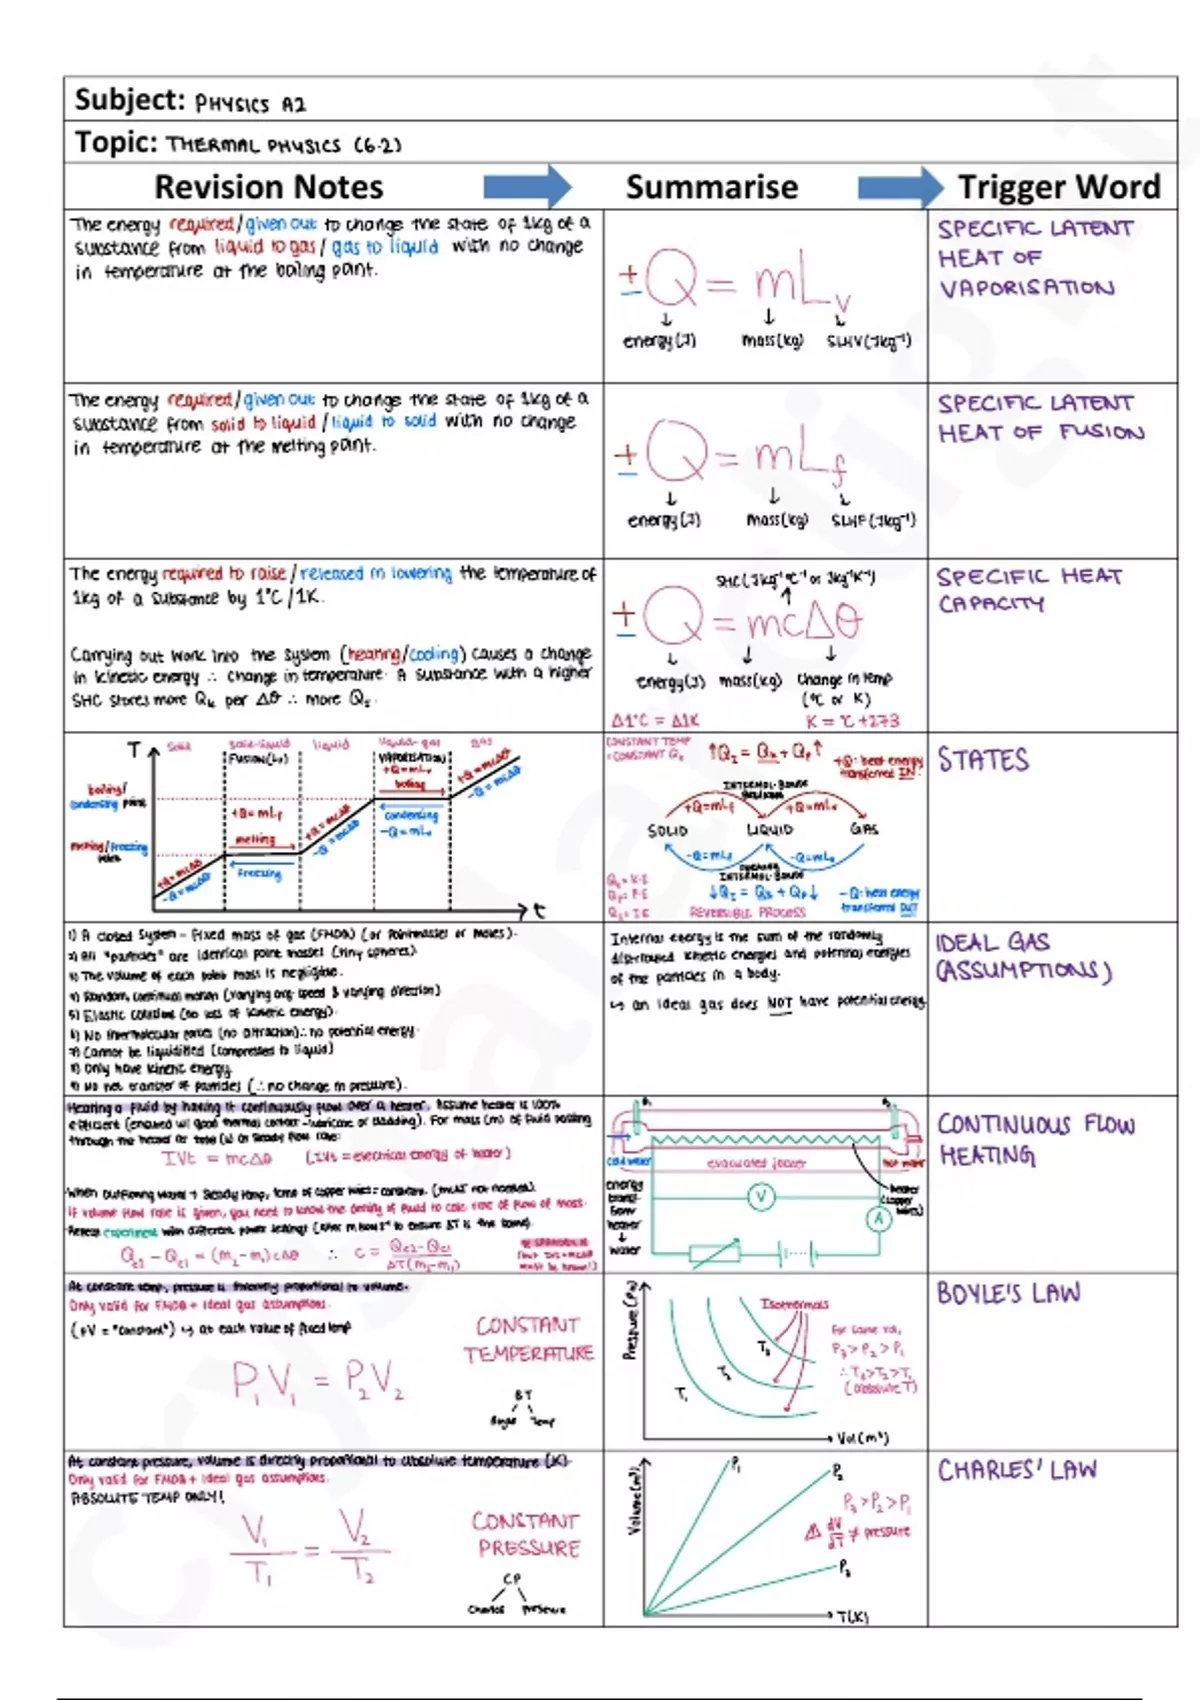 Subject: PHYSICS A2
Topic: THERMAL PHYSICS (6.2)
Revision Notes
Summarise
Trigger Word
The energy required/given out to change the state of 1kg of a
substance from liquid to gas/ gas to liquid with no change
in temperature at the boiling point.
± Q = mLv
energy(J) mass(kg) SLHV(Jkg⁻¹)
SPECIFIC LATENT
HEAT OF
VAPORISATION
The energy required/given out to change the state of 1kg of a
substance from solid to liquid /liquid to solid with no change
in temperature at the melting point.
± Q = mLf
energy(J) mass(kg) SLHF(Jkg⁻¹)
SPECIFIC LATENT
HEAT OF FUSION
The energy required to raise/released in lowering the temperature of
1kg of a substance by 1°C/1K.
Carrying out work into the system (heating/cooling) causes a change
in kinetic energy ∴ change in temperature. A substance with a higher
SHC stores more Qk per Δθ ∴ more QI.
SHC(Jkg⁻¹°C⁻¹ or Jkg⁻¹K⁻¹)
± Q = mcΔθ
energy(J) mass(kg) change in temp
(°C or K)
Δ1°C = Δ1K K = °C +273
SPECIFIC HEAT
CAPACITY
T
solid solid-liquid liquid liquid-gas gas
FUSION(Lf) VAPORISATION)
+Q=mLv
boiling
boiling/
condensing point
condensing
-Q=mLv
+Q=mLf
melting
melting/freezing
point
freezing
+Q=mcΔθ
-Q=mcΔθ
+Q=mcΔθ
-Q=mcΔθ
+Q=mcΔθ
-Q=mcΔθ
t
CONSTANT TEMP
=CONSTANT Qk
↑QI = Qk + Qp↑
+Q: heat energy
transferred IN.
INTERMOL. BONDS
+Q=mLf +Q=mLv
SOLID LIQUID GAS
-Q=mLf -Q=mLv
INTERMOL. BONDS
Qk = K.E
Qp = P.E
QI = I.E
↓QI = Qk + Qp↓
-Q: heat energy
transferred OUT
REVERSIBLE PROCESS
STATES
1) A closed system - fixed mass of gas (FMOA) (or pointmasses or moles).
2) All "particles" are identical point masses (tiny spheres).
3) The volume of each point mass is negligible.
4) Random, continual motion (varying avg speed & varying direction)
5) Elastic collisions (no loss of kinetic energy).
6) No intermolecular forces (no attraction)∴ no potential energy.
7) Cannot be liquidified (compresses to liquid)
8) Only have kinetic energy
9) No net transfer of particles (∴ no change in pressure).
Internal energy is the sum of the randomly
distributed kinetic energies and potential energies
of the particles in a body.
↳ an ideal gas does NOT have potential energy
IDEAL GAS
(ASSUMPTIONS)
Heating a fluid by having it continuously flow over a heater. Assume heater is 100%
efficient (ensured w/ good thermal contact - lubricate or padding). For mass (m) of fluid passing
through the heater at time (t) at steady flow rate:
IVt = mcΔθ (IVt = electrical energy of heater)
When outflowing water → steady temp, temp of copper wires = constant. (mcΔT not needed).
If volume flow rate is given, you need to know the density of fluid to calc rate of flow of mass.
Repeat experiment with different power settings
QE2 - QE1 = (m2 - m1)cΔθ ∴ c = QE2-QE1 / ΔT(m2-m1)
cold water
evacuated jacket
hot water
energy
transf.
from
heater
↓
water
V
A
heater
(copper
wires)
CONTINUOUS FLOW
HEATING
At constant temp, pressure is inversely proportional to volume.
Only valid for FMOA + ideal gas assumptions.
(pV = "constant") ↳ at each value of fixed temp
P1V1 = P2V2
CONSTANT
TEMPERATURE
BT
Boyle Temp
Pressure(Pa)
Isothermals
For same vol,
P3 > P2 > P1
∴ T3>T2>T1
(absolute T)
T3
T2
T1
Vol(m³)
BOYLE'S LAW
At constant pressure, volume is directly proportional to absolute temperature (K).
Only valid for FMOA + ideal gas assumptions.
ABSOLUTE TEMP ONLY!
V1/T1 = V2/T2
CONSTANT
PRESSURE
CP
Charles Pressure
Volume(m³)
P1
P2
P3
P3 > P2 > P1
⚠ dV/dT ≠ pressure
T(K)
CHARLES' LAW